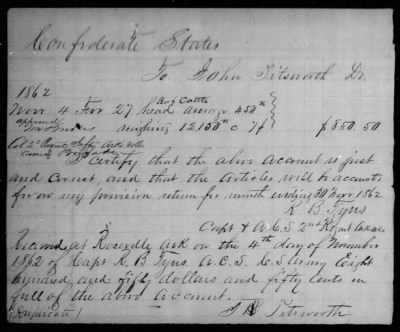 Confederate States
To John Titsworth Dr.
1862
Novr 4 For 27 head Beef Cattle average 450 lbs
weighing 12.150 lbs @ 7¢ $850.50
approved
Col 2d Regmt Ark Vols
Comdg Brigade
I Certify that the above account is just
and correct, and that the Articles will be accounted
for on my provision return for month ending 30 Novr 1862
R B Tyus
Capt & A.C.S. 2nd Regmt Ark
Received at Roseville Ark on the 4th day of November
1862 of Capt R. B Tyus A.C.S. C.S. Army Eight
hundred and fifty dollars and fifty cents in
full of the above Account.
(Duplicate) J Titsworth